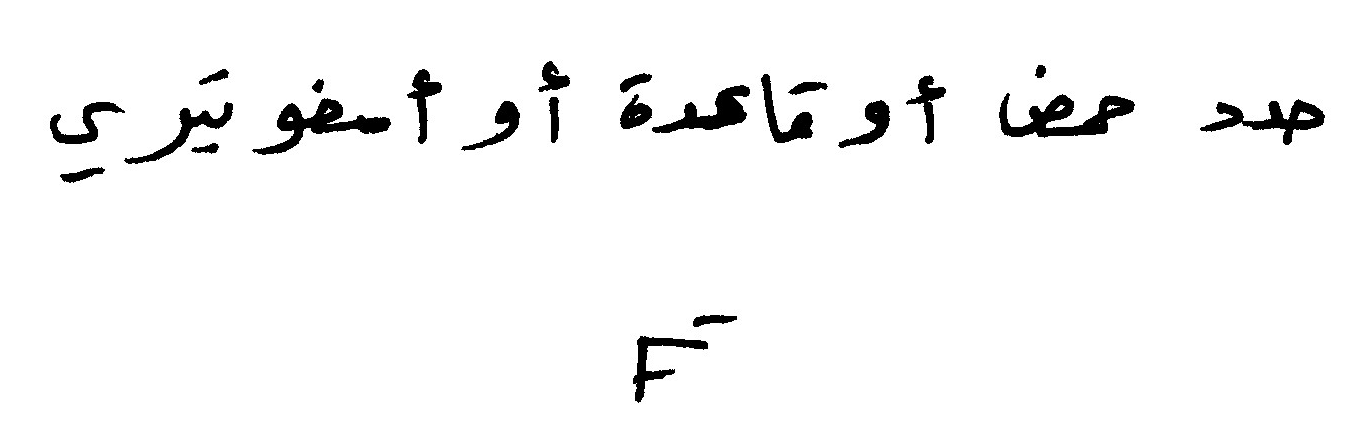 حدد حمض أو قاعدة أو أمفوتيري
F⁻